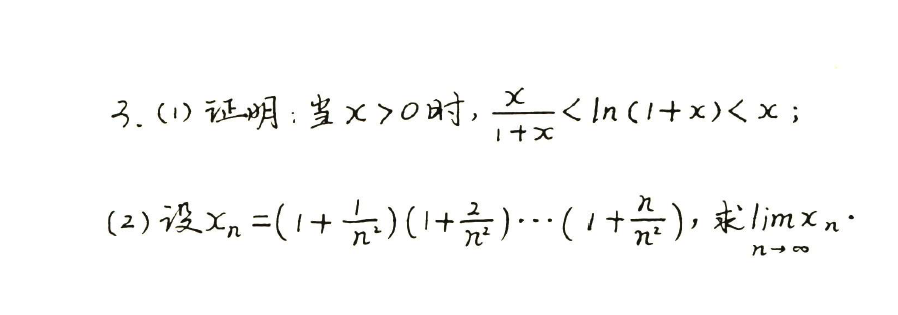 3. (1) 证明: 当 x > 0 时, \frac{x}{1+x} < ln(1+x) < x;
(2) 设 x_n = (1+\frac{1}{n^2})(1+\frac{2}{n^2})⋯(1+\frac{n}{n^2}), 求 \lim_{n→∞} x_n.